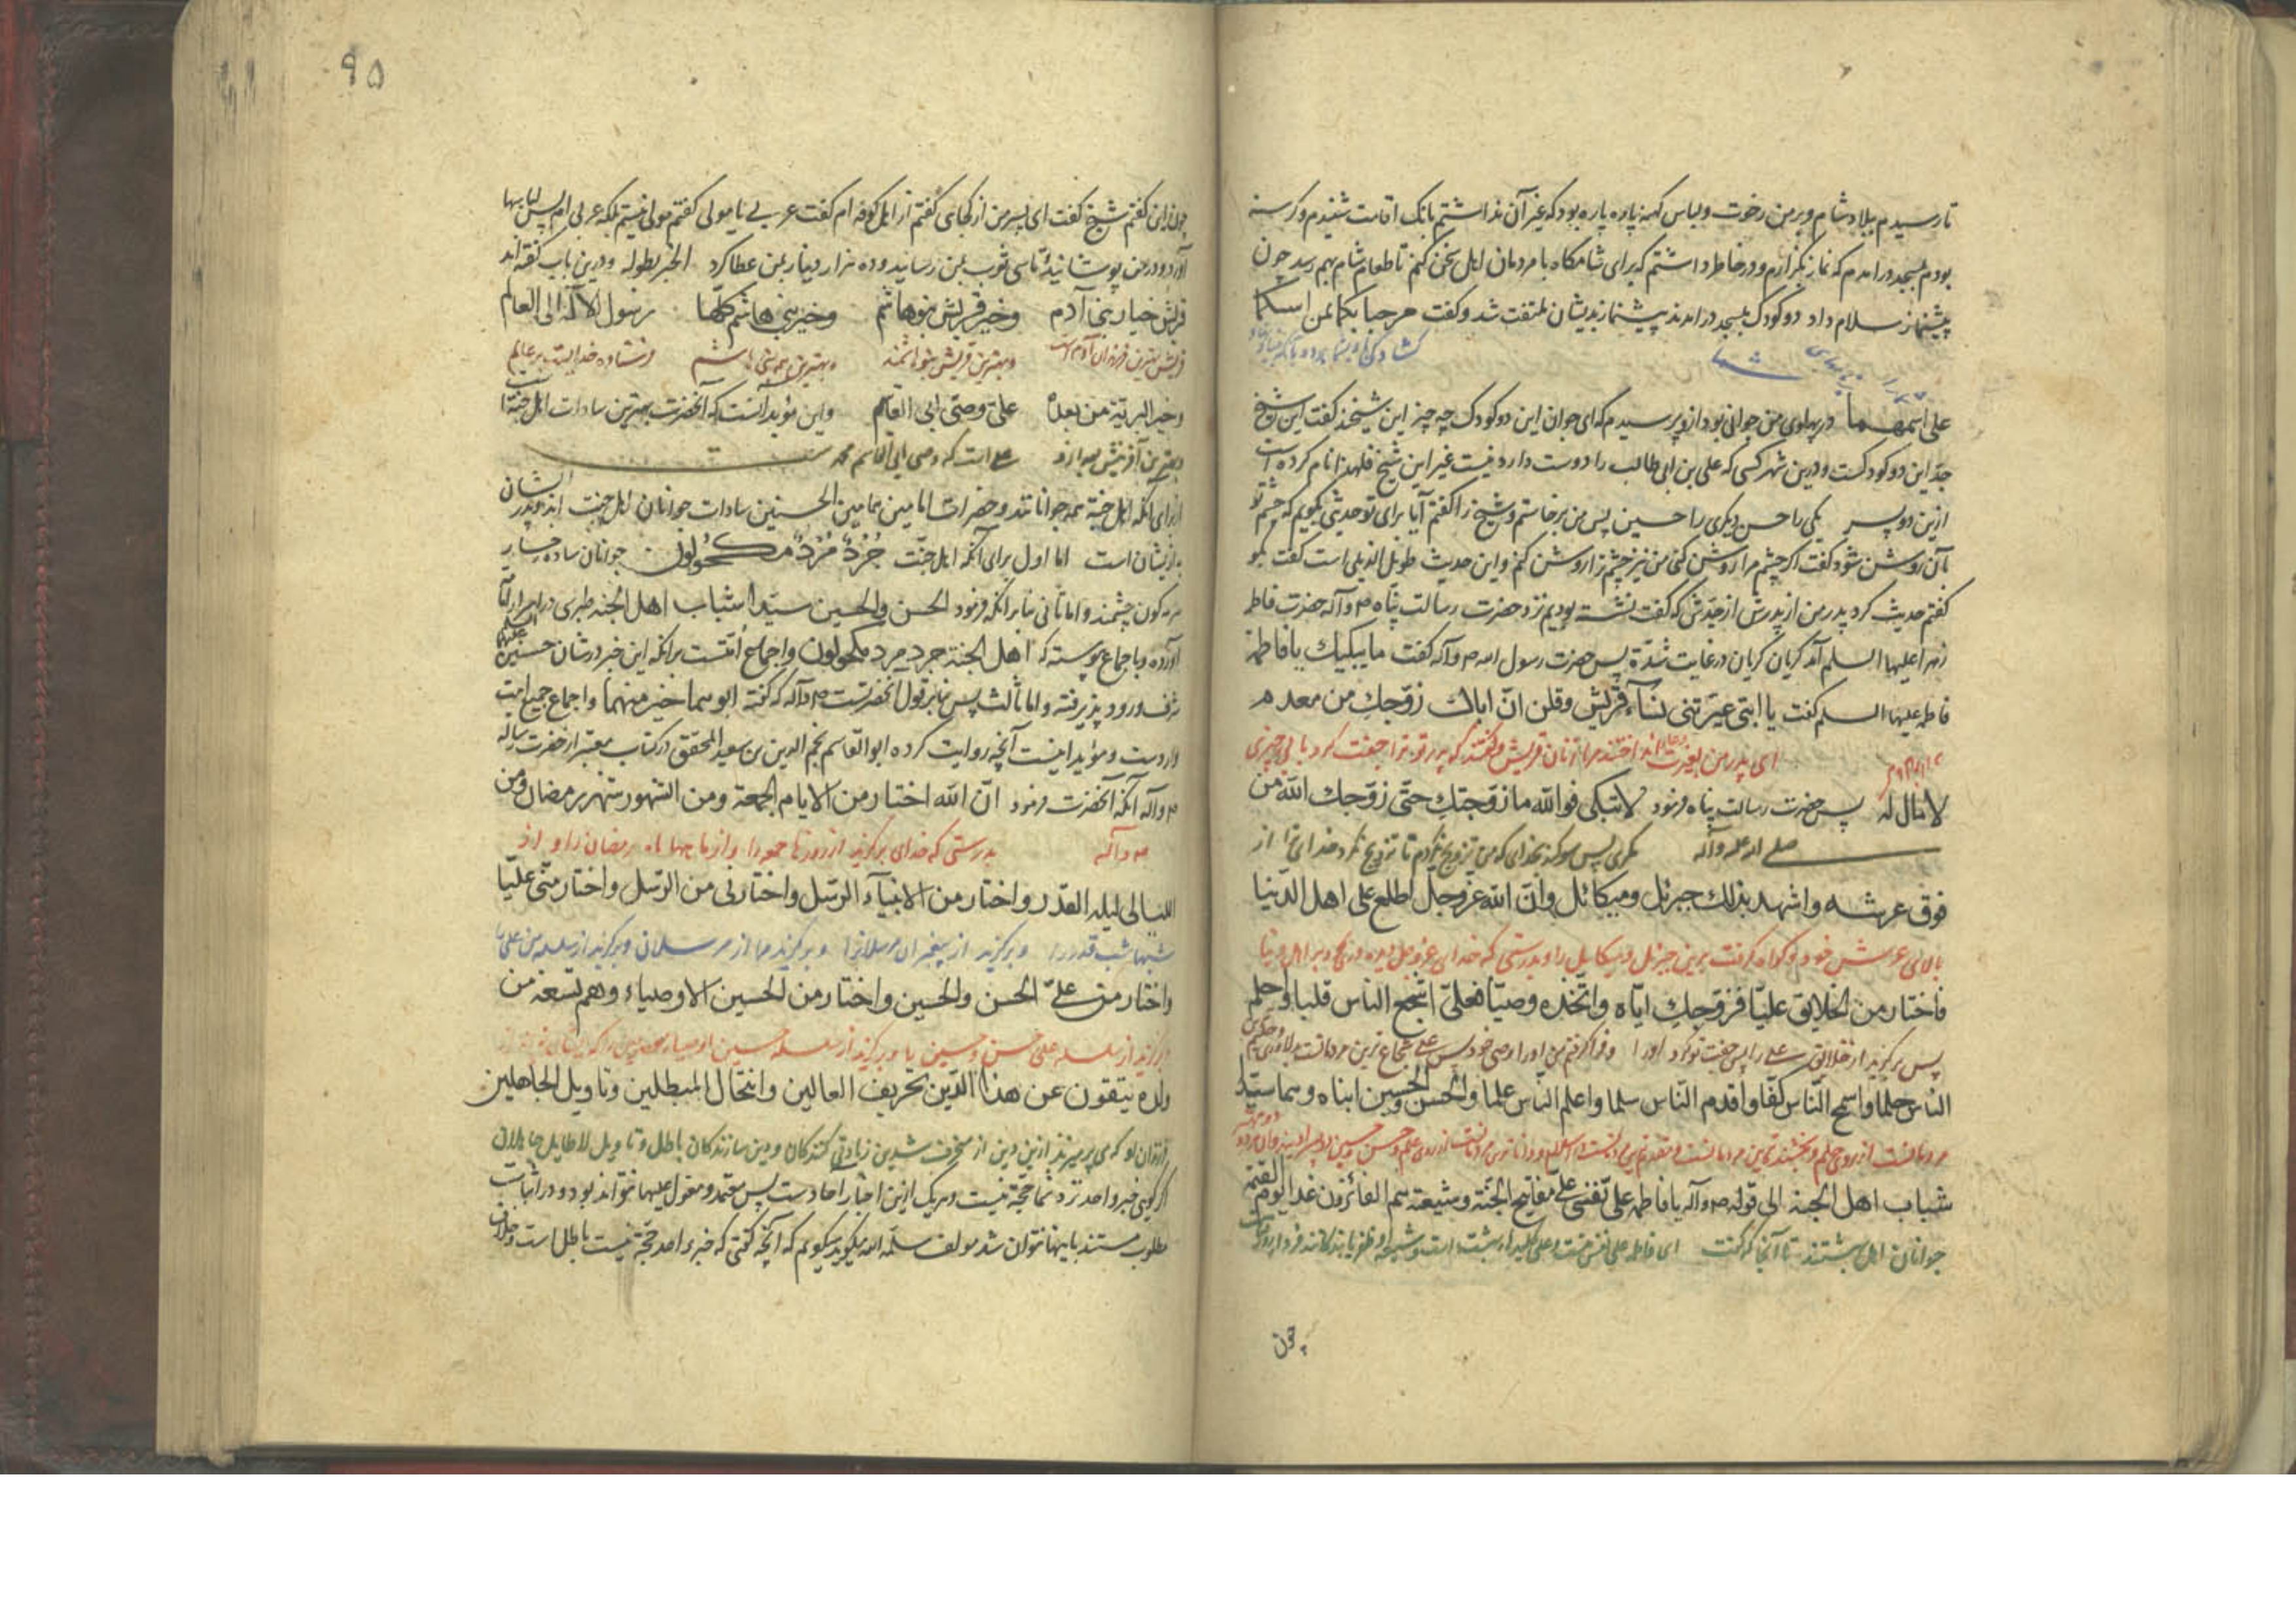 تا رسیدم ببلاد شام و بر من رخوت و لباس کهنه پاره پاره بود که غیر آن نداشتم بانک اقامت شنیدم و کرسنه
بودم بمسجد در امدم که نماز بکزارم و در خاطر داشتم که برای شامکاه با مردمان اهل سخن کنم تا طعام شام بهم رسد چون
پیشنماز سلام داد دو کودک بمسجد در امدند پیشنماز بدیشان ملتفت شد و کفت مرحبا بکما بمن اسمکما
شما
علی اسمهما در پهلوی من جوانی بود ازو پرسیدم که ای جوان این دو کودک چه چیز این شیخند کفت این شیخ
جد این دو کودکست و درین شهر کسی که علی بن ابی طالب را دوست دارد نیست غیر این شیخ فلهذا نام کرده است
ازین دو پسر یکی را حسن و دیکری را حسین پس من برخاستم و شیخ را کفتم آیا برای تو حدیثی بکویم که چشم تو
بآن روشن شود کفت اکر چشم مرا روشن کنی من نیز چشم ترا روشن کنم و این حدیث طویل الذیلی است کفت بکو
کفتم حدیث کرد پدر من از پدرش از جدش که کفت نشسته بودیم نزد حضرت رسالت پناه ص و آله حضرت فاطمه
زهرا علیها السلم آمد کریان کریان در غایت شدة پس حضرت رسول الله ص و آله کفت ما یبکیك یا فاطمة
فاطمه علیها السلم کفت یا ابتی عیرتنی نسآء قریش وقلن انّ اباك زوّجكِ من معدم
ای پدر من بغیرت انداختند مرا زنان قریش و کفتند که پدر تو ترا جفت کرد با بی چیزی
لا مال له پس حضرت رسالت پناه فرمود لا تبکی فوالله ما زوّجتكِ حتّی زوّجك الله من
صلی الله علیه وآله مکری پس سوکند بخدای که من تزویج نکردم تا تزویج نکرد خدای ترا از
فوق عرشه واشهد بذلك جبرئل ومیکائل وانّ الله عزوجل اطلع علی اهل الدّنیا
بالای عرش خود و کواه کرفت برین جبرئل و میکایل را و بدرستی که خدای عزوجل بر اهل دنیا
فاختار من الخلایق علیّا فزوّجكِ ایّاه واتّخذه وصیّا فعلیّ اشجع الناس قلبا واحلم
پس برکزید از خلایق علی را پس جفت تو کرد اورا و فرا کرفتم من اورا وصی خود پس علی شجاع ترین مردمانست
النّاس حلما واسمح النّاس کفّا واقدم النّاس سلما واعلم النّاس علما والحسن والحسین ابناه وهما سیّدا
مردمانست از روی حلم و بخشنده ترین مردمانست و مقدم ترین مردمانست در اسلام و داناترین مردمانست از روی علم و حسن و حسین دو پسر
شباب اهل الجنة الی قوله ص وآله یا فاطمه علی نفسی علیّ مفاتیح الجنّة وشیعته هم الفائزون غدا یوم القیمة
جوانان اهل بهشتند تا آنجا که کفت ای فاطمه علی نفس منست و علی کلیدهای بهشت است و شیعه او ظفر یابندکانند فردا
چون
۹۵
چون این کفتم شیخ کفت ای پسر من از کجای کفتم از اهل کوفه ام کفت عربی یا مولی کفتم مولی نیستم بلکه عربی ام پس لباسها
آورد و در من پوشانید تا سی ثوب بمن رسانید و ده هزار دینار بمن عطا کرد الخبر بطوله و درین باب کفته اند
قریش خیار بنی آدم وخیر قریش بنو هاشم وخیر بنی هاشم کلّها رسول الاله الی العالم
قریش بهترین فرزندان آدم است وبهترین قریش بنو هاشمند وبهترین همه بنی هاشم فرستاده خدایست بر عالم
وخیر البریّة من بعده علیّ وصیّ ابی القاسم واین مؤید آنست که آنحضرت بهترین سادات اهل جنة است
وبهترین آفرینش بعد ازو علی است که وصی ابی القاسم محمد ست
از برای آنکه اهل جنة همه جوانانند و حضرات امامین همامین الحسنین سادات جوانان اهل جنت اند و پدر ایشان
به از ایشان است اما اول برای آنکه اهل جنّت جُرْدٌ مُرْدٌ مکحولون جوانان ساده رخسار
سرمه کون چشمند و اما ثانی بنا بر آنکه فرمود الحسن والحسین سیّدا شباب اهل الجنة طبری در
آورده و باجماع پیوسته که اهل الجنة جرد مرد مکحولون واجماع امّتست بر آنکه این خبر در شان حسنین علیهما السلم
شرف ورود پذیرفته و اما ثالث پس بنا بر قول آنحضرتست ص و آله که کفته ابوهما خیر منهما واجماع جمیع امت
وارد ست و مؤید اینست آنچه روایت کرده ابو القاسم نجم الدین بن سعید المحقق در کتاب معتبر از حضرت رساله
ص وآله آنکه آنحضرت فرمود انّ الله اختار من الایام الجمعة ومن الشهور شهر رمضان ومن
ص وآله بدرستی که خدای برکزید از روزها جمعه را و از ماهها ماه رمضان را و از
اللیالی لیلة القدر واختار من الانبیآء الرسل واختارنی من الرسل واختار منّی علیّا
شبها شب قدر را وبرکزید از پیغمبران مرسلانرا وبرکزید مرا از مرسلان وبرکزید از سلسله من علی را
واختار من علیّ الحسن والحسین واختار من الحسین الاوصیاء وهم تسعة من
برکزید از سلسله علی حسن و حسین را وبرکزید از سلسله حسین اوصیاء
ولده ینفون عن هذا الدّین تحریف الغالین وانتحال المبطلین وتاویل الجاهلین
فرزندان او که می پرهیزند ازین دین از منحرف شدن زیادتی کنندکان و دین سازندکان باطل و تاویل لا طایل جاهلان
اکر کویی خبر واحد نزد شما حجّة نیست و هر یک ازین اخبار احادست پس معتمد و معول علیها نتواند بود و در اثبات
مطلوب مستند باینها نتوان شد مولف سلّمه الله میکوید میکویم که آنچه کفتی که خبر واحد حجّة نیست باطل است و خلاف